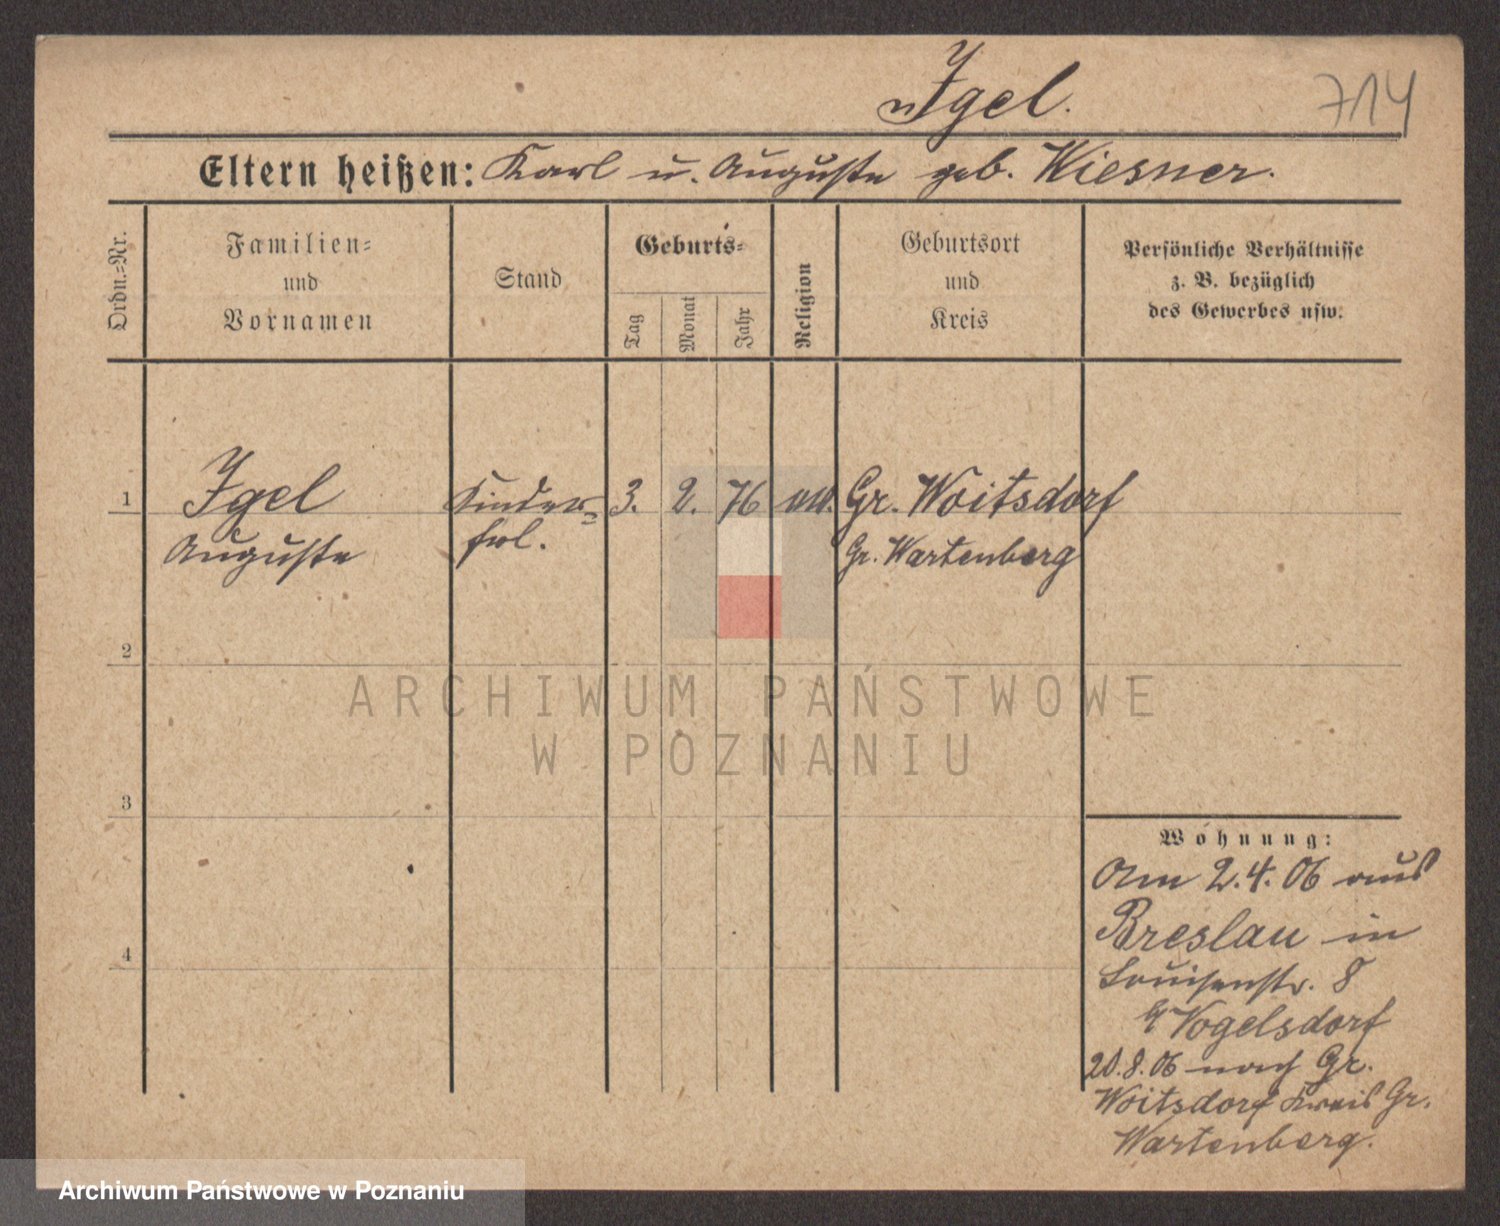 Igel.
714
Eltern heißen: Karl u. Auguste geb. Wiesner.
Ordn.=Nr.
Familien=
und
Vornamen
Stand
Geburts=
Tag
Monat
Jahr
Religion
Geburtsort
und
Kreis
Persönliche Verhältnisse
z. B. bezüglich
des Gewerbes usw.
1
Igel
Auguste
Kinder=
frl.
3. 2. 76
Gr. Woitsdorf
Gr. Wartenberg
2
ARCHIWUM PAŃSTWOWE
W POZNANIU
3
4
Wohnung:
Am 2.4.06 aus
Breslau in
Louisenstr. 8
Vogelsdorf
20.8.06 nach Gr.
Woitsdorf Kreis Gr.
Wartenberg.
Archiwum Państwowe w Poznaniu